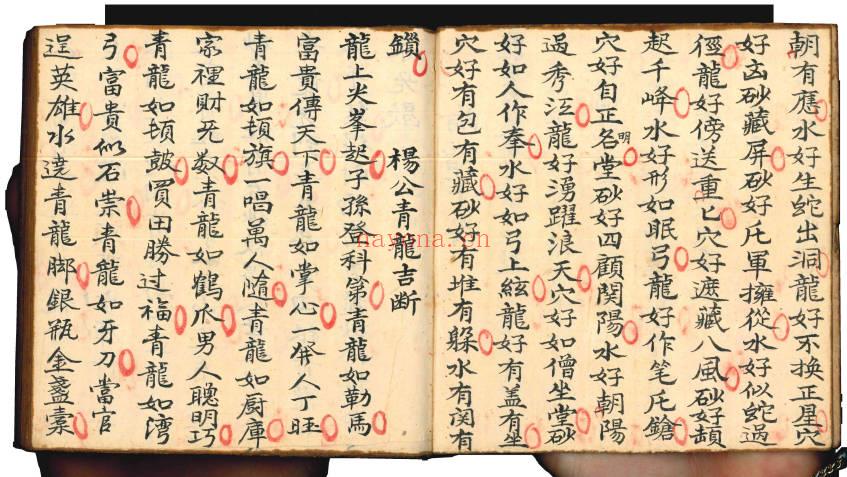 朝有應水好生蛇出洞龍好不換正星穴
好玄砂藏屏砂好屯軍擁從水好似蛇過
徑龍好傍送重匕穴好遮藏八風砂好頡
起千峰水好形如眠弓龍好作笔屯鎗
穴好自正名明堂砂好四顧関陽水好朝陽
过秀江龍好湧躍浪天穴好如僧坐堂砂
好如人作奉水好如弓上絃龍好有盖有坐
穴好有包有藏砂好有堆有躲水有関有
鎖 楊公青龍吉断
龍上尖峯起子孫登科第青龍如勒馬
富貴傳天下青龍如掌心一発人丁旺
青龍如頓旗一唱萬人隨青龍如厨庫
家裡財无数青龍如鶴爪男人聰明巧
青龍如頓皷買田勝过福青龍如湾
弓富貴似石崇青龍如牙刀當官
逞英雄水遶青龍脚銀瓶金盞
nayona.cn